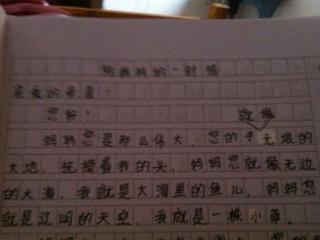 给妈妈的一封信
亲爱的妈妈：
您好！
就像
妈妈您是那么伟大，您的手无垠的
大地，抚摸着我的头，妈妈您就像无边
的大海，我就是大海里的鱼儿，妈妈您
就是辽阔的天空，我就是一株小草。